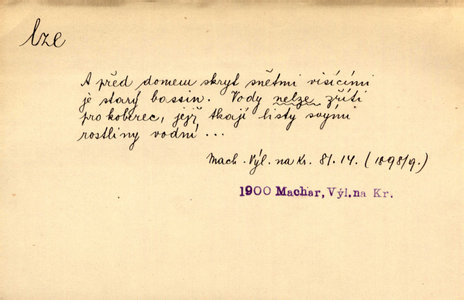 lze
A před domem skryt snětmi visícími
je starý bassin. Vody nelze zříti
pro koberec, jejž tkají listy svými
rostliny vodní ...
Mach. Výl. na Kr. 81.14. (1898/9.)
1900 Machar, Výl. na Kr.